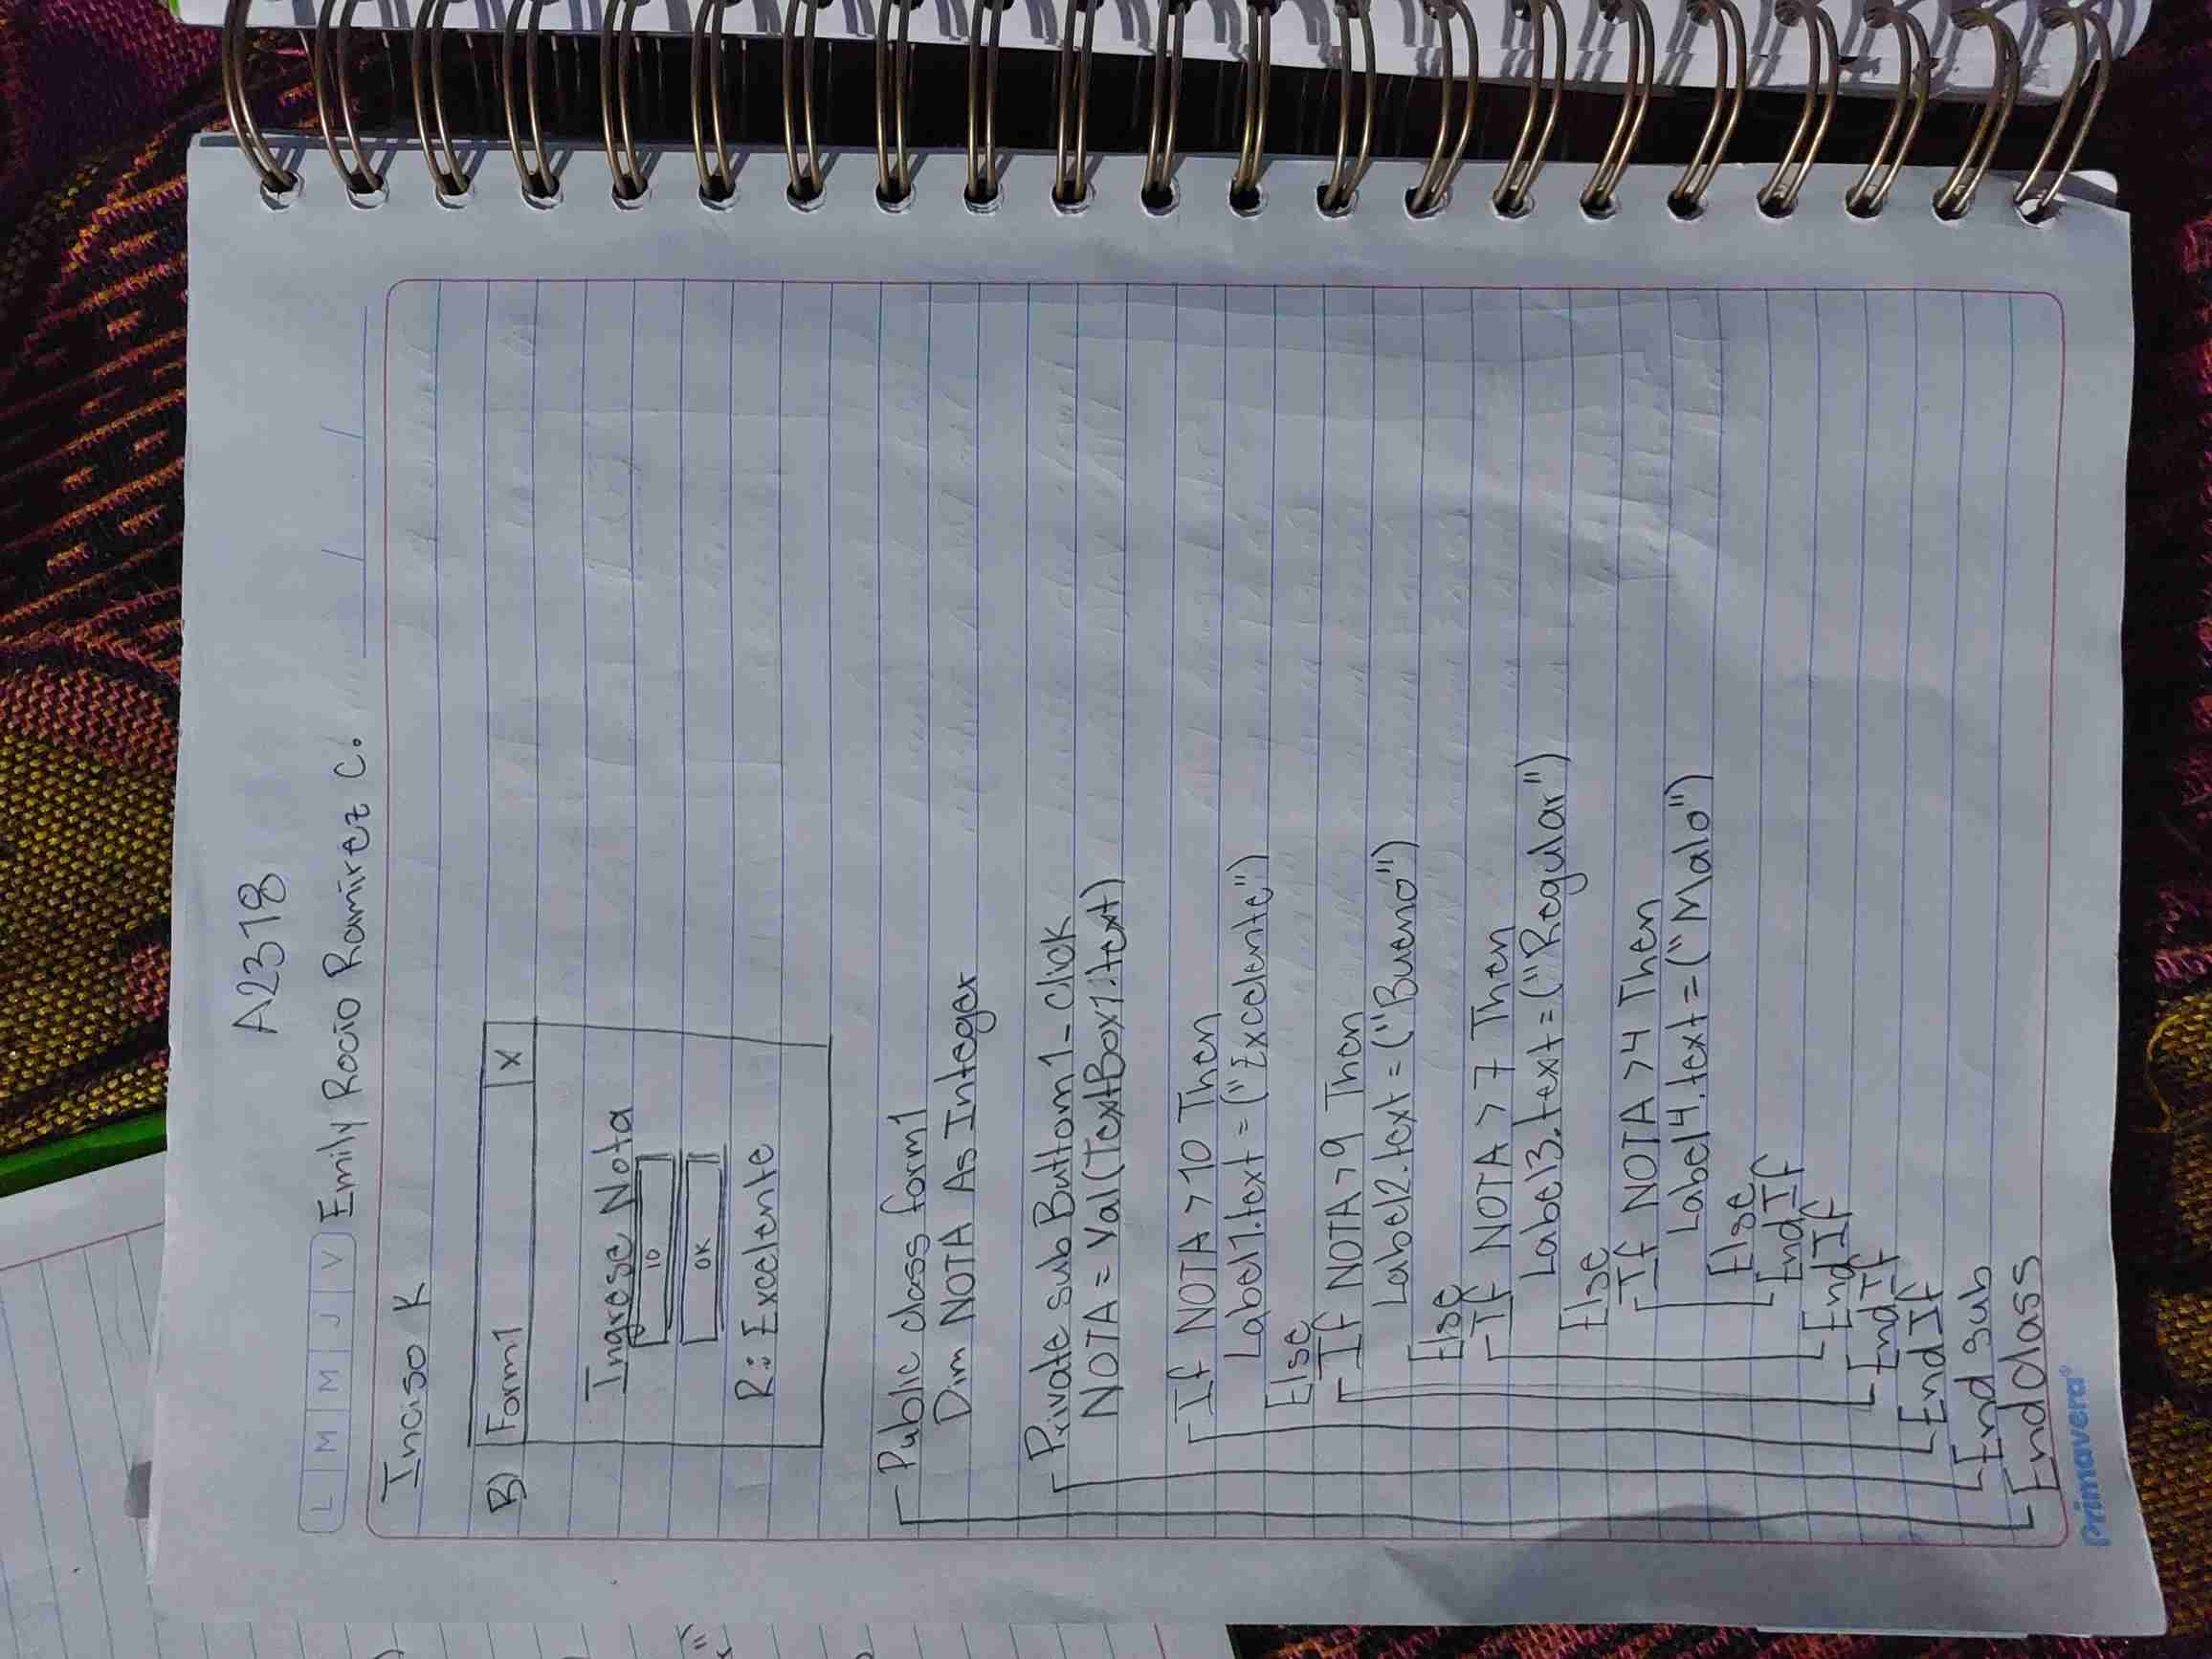 A2318
L M M J V Emily Rocio Ramirez C.
Inciso K
B) Form1 X
Ingrese Nota
10
OK
R: Excelente
Public class form1
Dim NOTA As Integer
Private sub Buttom1-click
NOTA = Val(TextBox1.text)
If NOTA >10 Then
Label1.text = ("Excelente")
Else
If NOTA >9 Then
Label2.text = ("Bueno")
Else
If NOTA >7 Then
Label3.text = ("Regular")
Else
If NOTA >4 Then
Label4.text = ("Malo")
Else
End If
End If
End If
End If
End sub
End class
primavera